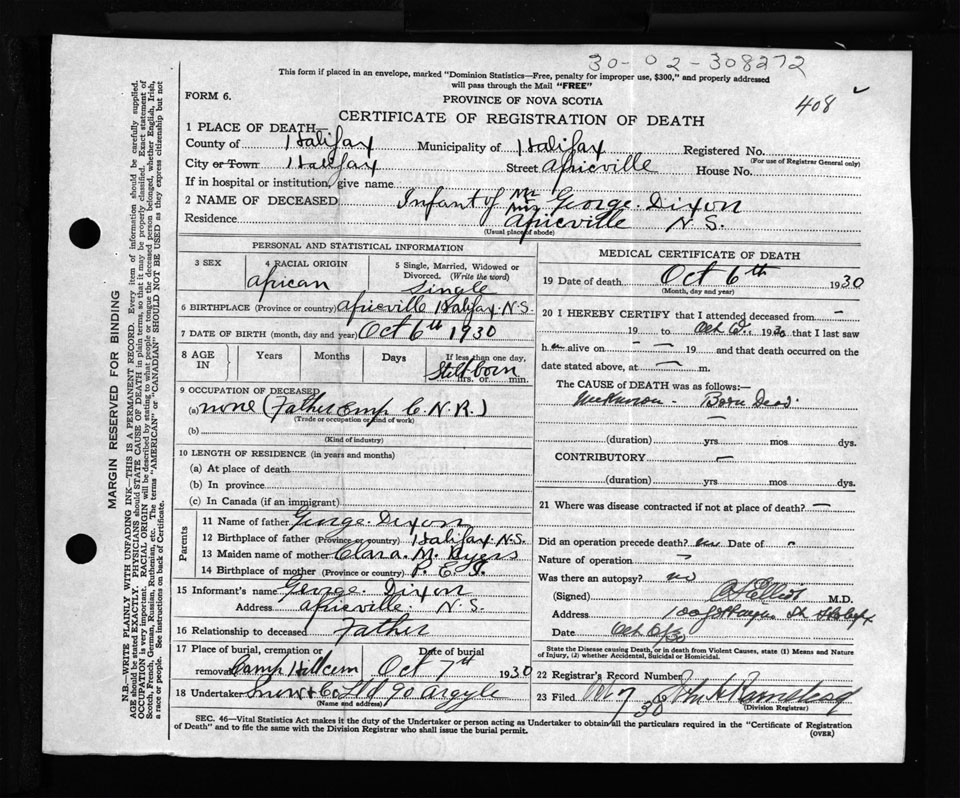 30-02-308272
This form if placed in an envelope, marked "Dominion Statistics—Free, penalty for improper use, $300," and properly addressed
will pass through the Mail "FREE"
408
FORM 6.
PROVINCE OF NOVA SCOTIA
CERTIFICATE OF REGISTRATION OF DEATH
1 PLACE OF DEATH—
County of Halifax Municipality of Halifax Registered No.
(For use of Registrar General only)
City or Town Halifax Street Africville House No.
If in hospital or institution, give name
2 NAME OF DECEASED Infant of Mr Mrs George Dixon
Residence Africville N.S.
(Usual place of abode)
PERSONAL AND STATISTICAL INFORMATION
3 SEX
4 RACIAL ORIGIN
African
5 Single, Married, Widowed or
Divorced. (Write the word)
Single
6 BIRTHPLACE (Province or country) Africville Halifax N.S.
7 DATE OF BIRTH (month, day and year) Oct 6th 1930
8 AGE IN Years Months Days If less than one day,
Still born
hrs. or min.
9 OCCUPATION OF DECEASED
(a) none (Father emp C.N.R.)
(Trade or occupation or kind of work)
(b)
(Kind of industry)
10 LENGTH OF RESIDENCE (in years and months)
(a) At place of death
(b) In province
(c) In Canada (if an immigrant)
Parents
11 Name of father George Dixon
12 Birthplace of father (Province or country) Halifax N.S.
13 Maiden name of mother Clara M. Byers
14 Birthplace of mother (Province or country) P.E.I.
15 Informant's name George Dixon
Address Africville N.S.
16 Relationship to deceased Father
17 Place of burial, cremation or Date of burial
removal Camp Hill cem Oct 7th 1930
18 Undertaker Snow & Co Ltd 90 Argyle
(Name and address)
MEDICAL CERTIFICATE OF DEATH
19 Date of death Oct 6th 1930
(Month, day and year)
20 I HEREBY CERTIFY that I attended deceased from —
19 to Oct 6, 1930 that I last saw
h alive on — — 19 and that death occurred on the
date stated above, at — m.
The CAUSE OF DEATH was as follows:—
Unknown - Born Dead.
—
(duration) yrs mos dys.
CONTRIBUTORY —
(duration) yrs. mos. dys.
21 Where was disease contracted if not at place of death? —
Did an operation precede death? no Date of
Nature of operation —
Was there an autopsy? no
(Signed) M.D.
Address
Date Oct 6/30
State the Disease causing Death, or in death from Violent Causes, state (1) Means and Nature
of Injury, (2) whether Accidental, Suicidal or Homicidal.
22 Registrar's Record Number
23 Filed Oct 7 30
(Division Registrar)
SEC. 46—Vital Statistics Act makes it the duty of the Undertaker or person acting as Undertaker to obtain all the particulars required in the "Certificate of Registration
of Death" and to file the same with the Division Registrar who shall issue the burial permit.
(OVER)
MARGIN RESERVED FOR BINDING
N.B.—WRITE PLAINLY WITH UNFADING INK—THIS IS A PERMANENT RECORD. Every item of information should be carefully supplied.
AGE should be stated EXACTLY. PHYSICIANS should STATE CAUSE OF DEATH in plain terms, so that it may be properly classified. Exact statement of
OCCUPATION is very important. RACIAL ORIGIN will be described by stating to what people or tongue the deceased person belonged, whether English, Irish,
Scotch, French, German, Russian, Ruthenian, etc. The terms "AMERICAN" or "CANADIAN" SHOULD NOT BE USED as they express citizenship but not
a race or people. See instructions on back of Certificate.